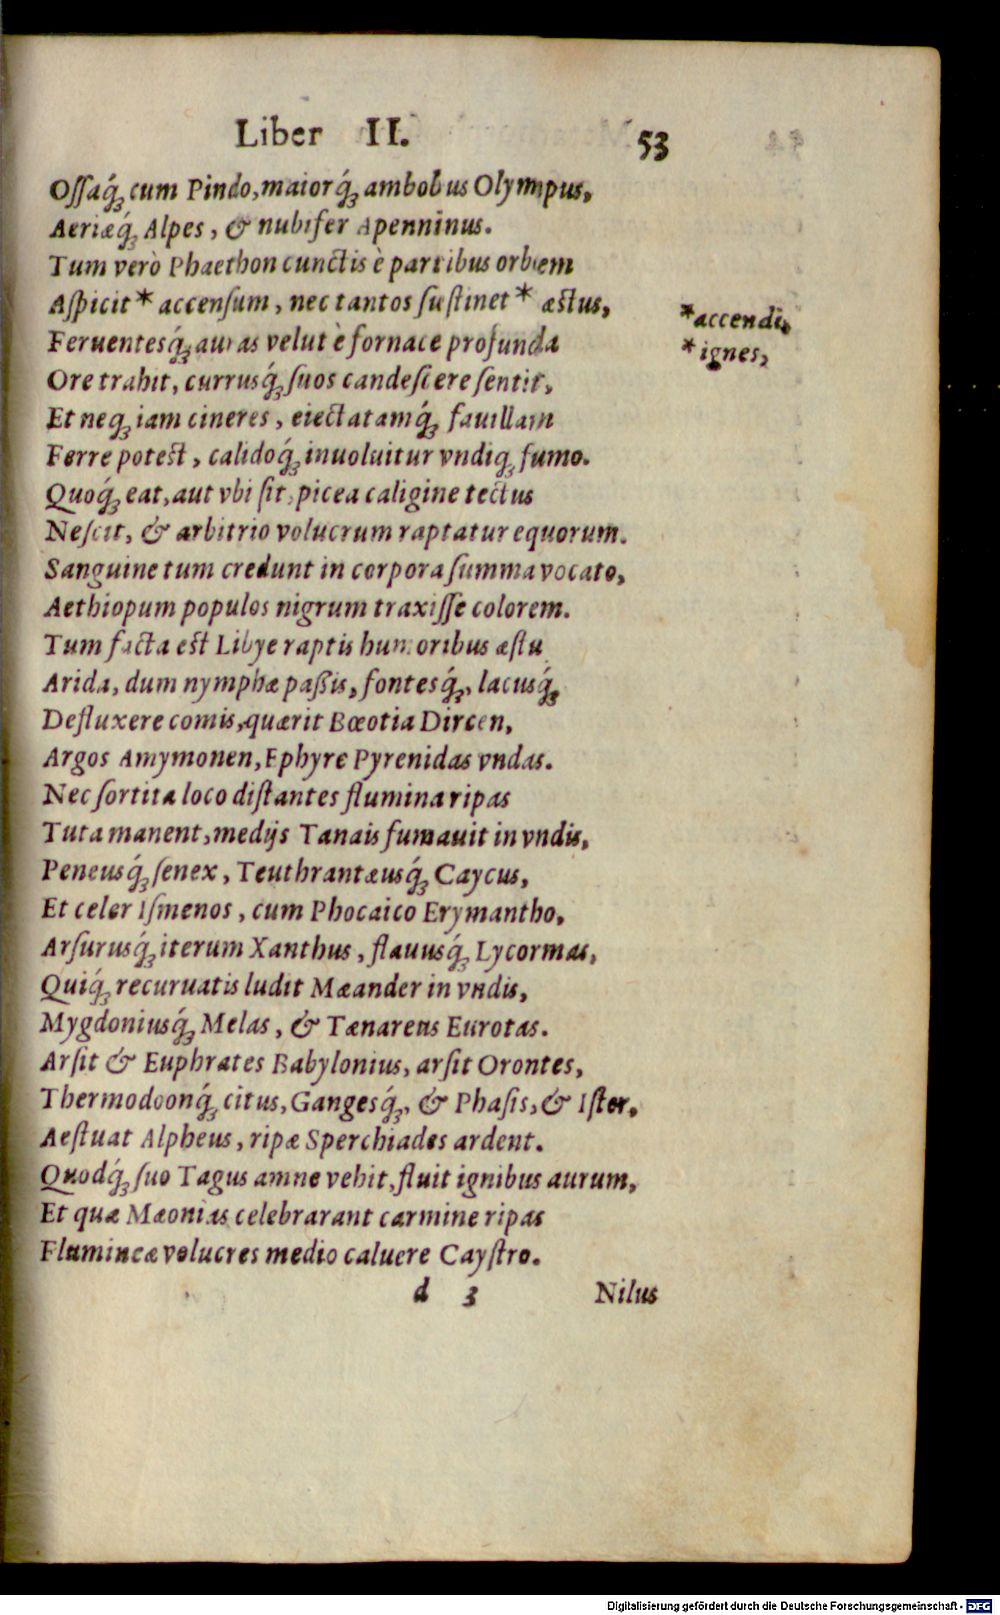 Liber II. 53
Oſſaq́ꝫ cum Pindo, maiorq́ꝫ ambobus Olympus,
Aeriæq́ꝫ Alpes, & nubifer Apenninus.
Tum verò Phaethon cunctis è partibus orbem
Aſpicit * accenſum, nec tantos ſuſtinet * æſtus,
*accendi,
Feruentesq́ꝫ auras velut è fornace profunda
*ignes,
Ore trahit, currusq́ꝫ ſuos candeſcere ſentit,
Et neqꝫ iam cineres, eiectatamq́ꝫ fauillam
Ferre potest, calidoq́ꝫ inuoluitur vndiqꝫ fumo.
Quoq́ꝫ eat, aut vbi ſit, picea caligine tectus
Neſcit, & arbitrio volucrum raptatur equorum.
Sanguine tum credunt in corpora ſumma vocato,
Aethiopum populos nigrum traxiſſe colorem.
Tum facta est Libye raptis humoribus æſtu
Arida, dum nymphæ paßis, fontesq́ꝫ, lacusq́ꝫ
Defluxere comis, quærit Bœotia Dircen,
Argos Amymonen, Ephyre Pyrenidas vndas.
Nec ſortita loco diſtantes flumina ripas
Tuta manent, medijs Tanais fumauit in vndis,
Peneusq́ꝫ ſenex, Teuthrantæusq́ꝫ Caycus,
Et celer Iſmenos, cum Phocaico Erymantho,
Arſurusq́ꝫ iterum Xanthus, flauusq́ꝫ Lycormas,
Quiq́ꝫ recuruatis ludit Mæander in vndis,
Mygdoniusq́ꝫ Melas, & Tænareus Eurotas.
Arſit & Euphrates Babylonius, arſit Orontes,
Thermodoonq́ꝫ citus, Gangesq́ꝫ, & Phaſis, & Iſter,
Aeſtuat Alpheus, ripæ Sperchiades ardent.
Quodq́ꝫ ſuo Tagus amne vehit, fluit ignibus aurum,
Et quæ Mæonias celebrarant carmine ripas
Flumineæ volucres medio caluere Cayſtro.
d 3 Nilus
Digitalisierung gefördert durch die Deutsche Forschungsgemeinschaft - DFG